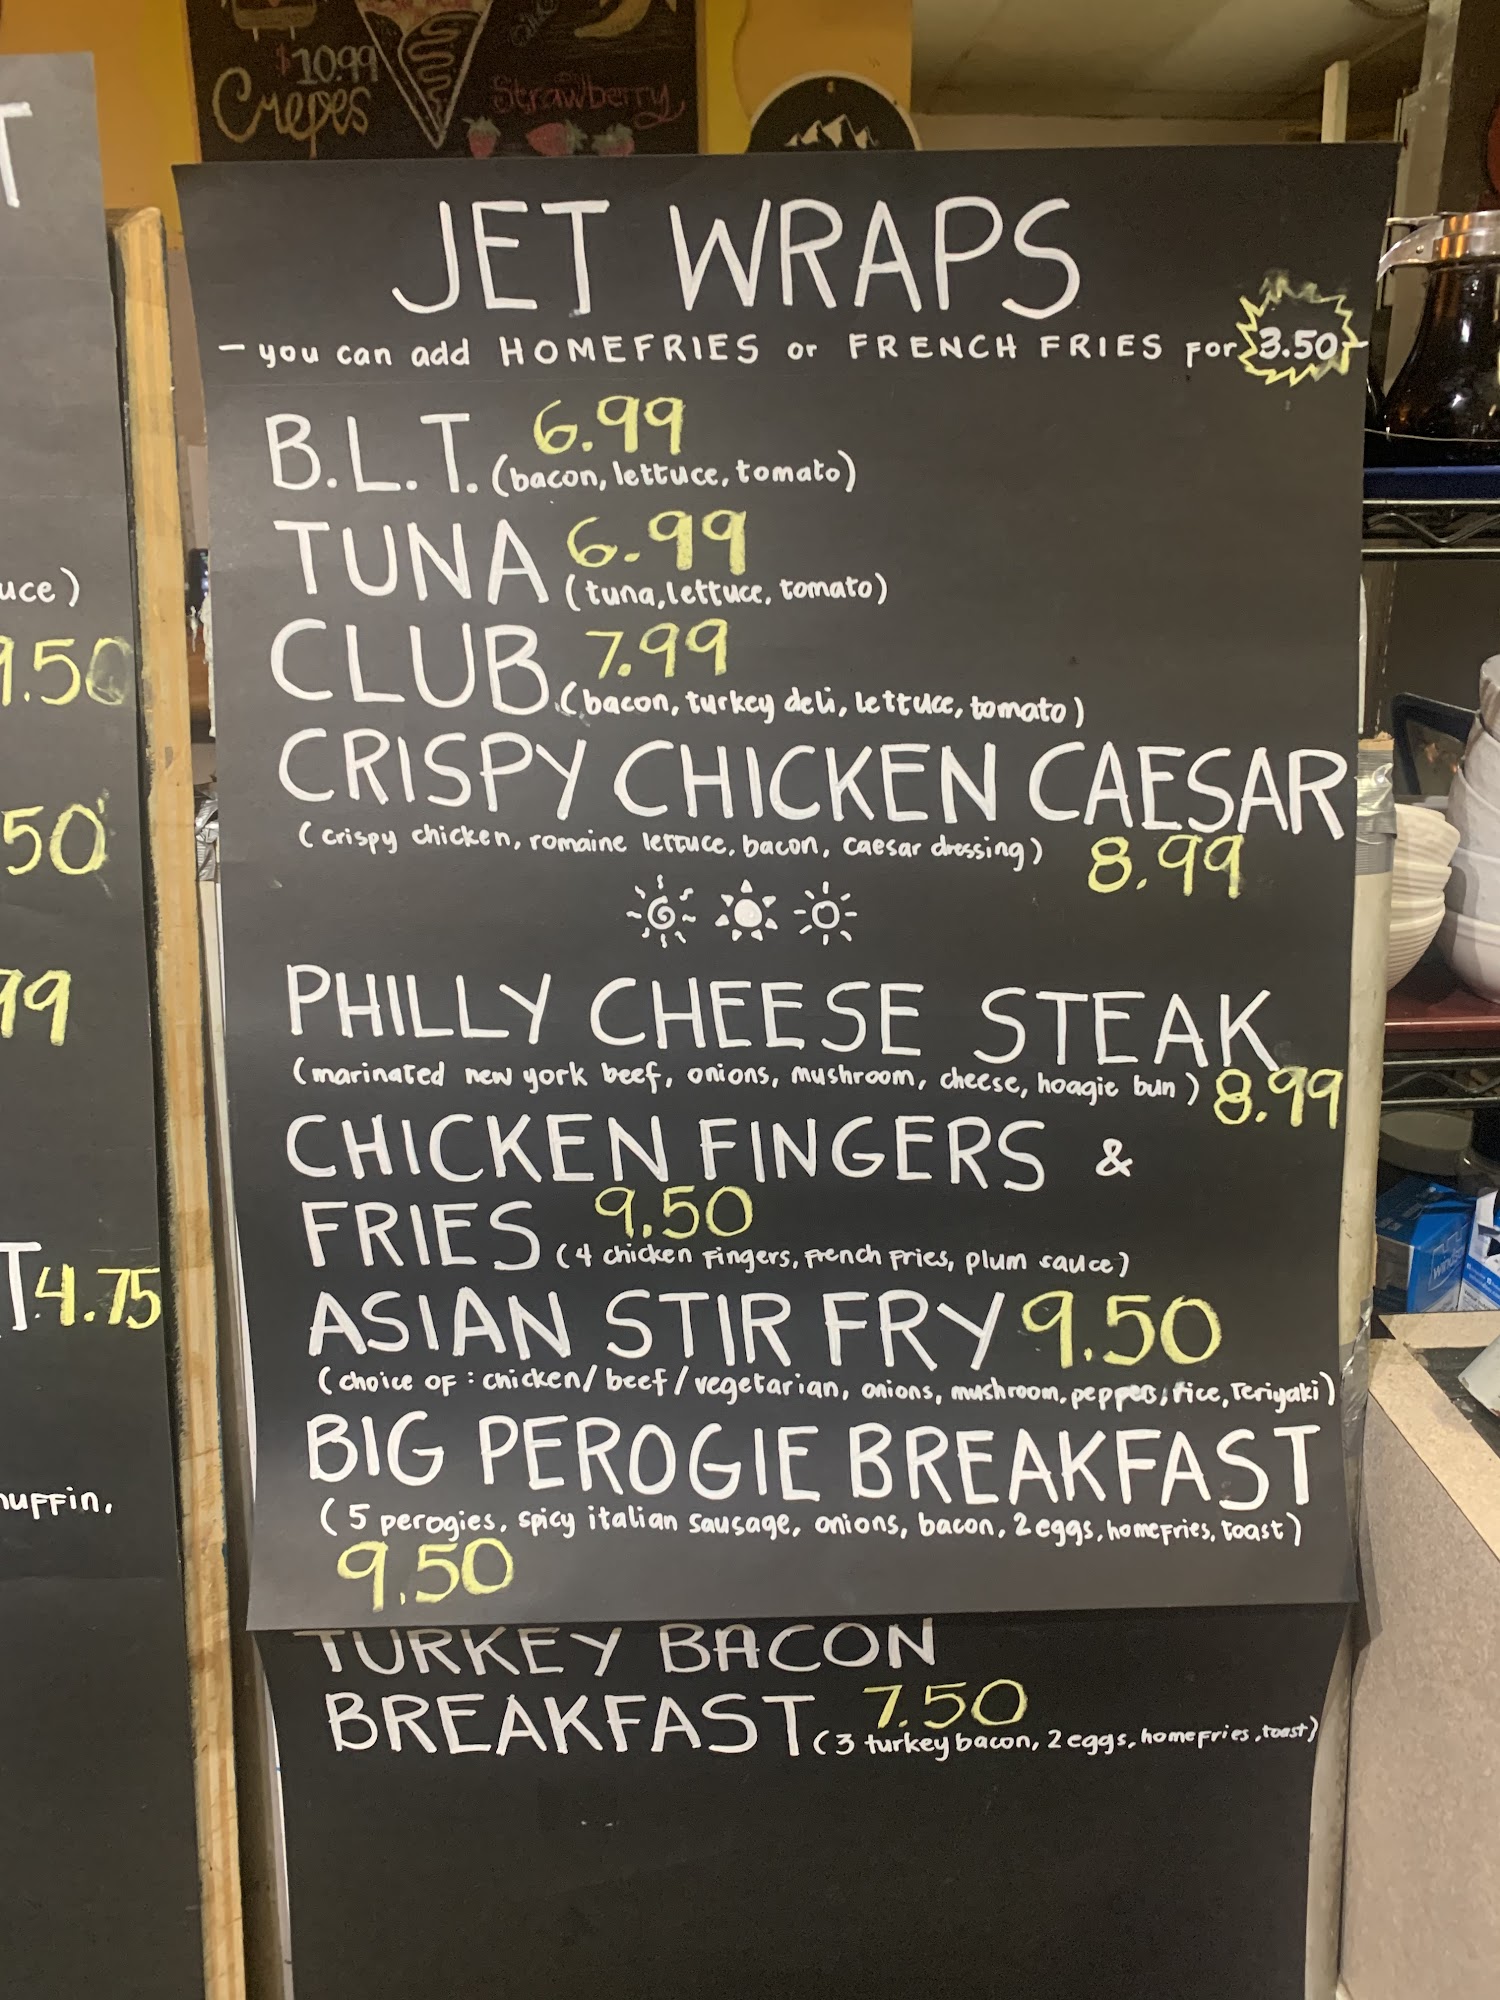 $10.99
Crepes
Strawberry
T
uce)
9.50
50
99
T 4.75
muffin.
JET WRAPS
- you can add HOMEFRIES or FRENCH FRIES for 3.50-
B.L.T. 6.99
(bacon, lettuce, tomato)
TUNA 6.99
(tuna, lettuce, tomato)
CLUB 7.99
(bacon, turkey deli, lettuce, tomato)
CRISPY CHICKEN CAESAR
(crispy chicken, romaine lettuce, bacon, caesar dressing) 8.99
PHILLY CHEESE STEAK
(marinated new york beef, onions, mushroom, cheese, hoagie bun) 8.99
CHICKEN FINGERS &
FRIES 9.50
(4 chicken fingers, french fries, plum sauce)
ASIAN STIR FRY 9.50
(choice of: chicken/beef/vegetarian, onions, mushroom, peppers, rice, Teriyaki)
BIG PEROGIE BREAKFAST
(5 perogies, spicy italian sausage, onions, bacon, 2 eggs, homefries, toast)
9.50
TURKEY BACON
BREAKFAST 7.50
(3 turkey bacon, 2 eggs, homefries, toast)